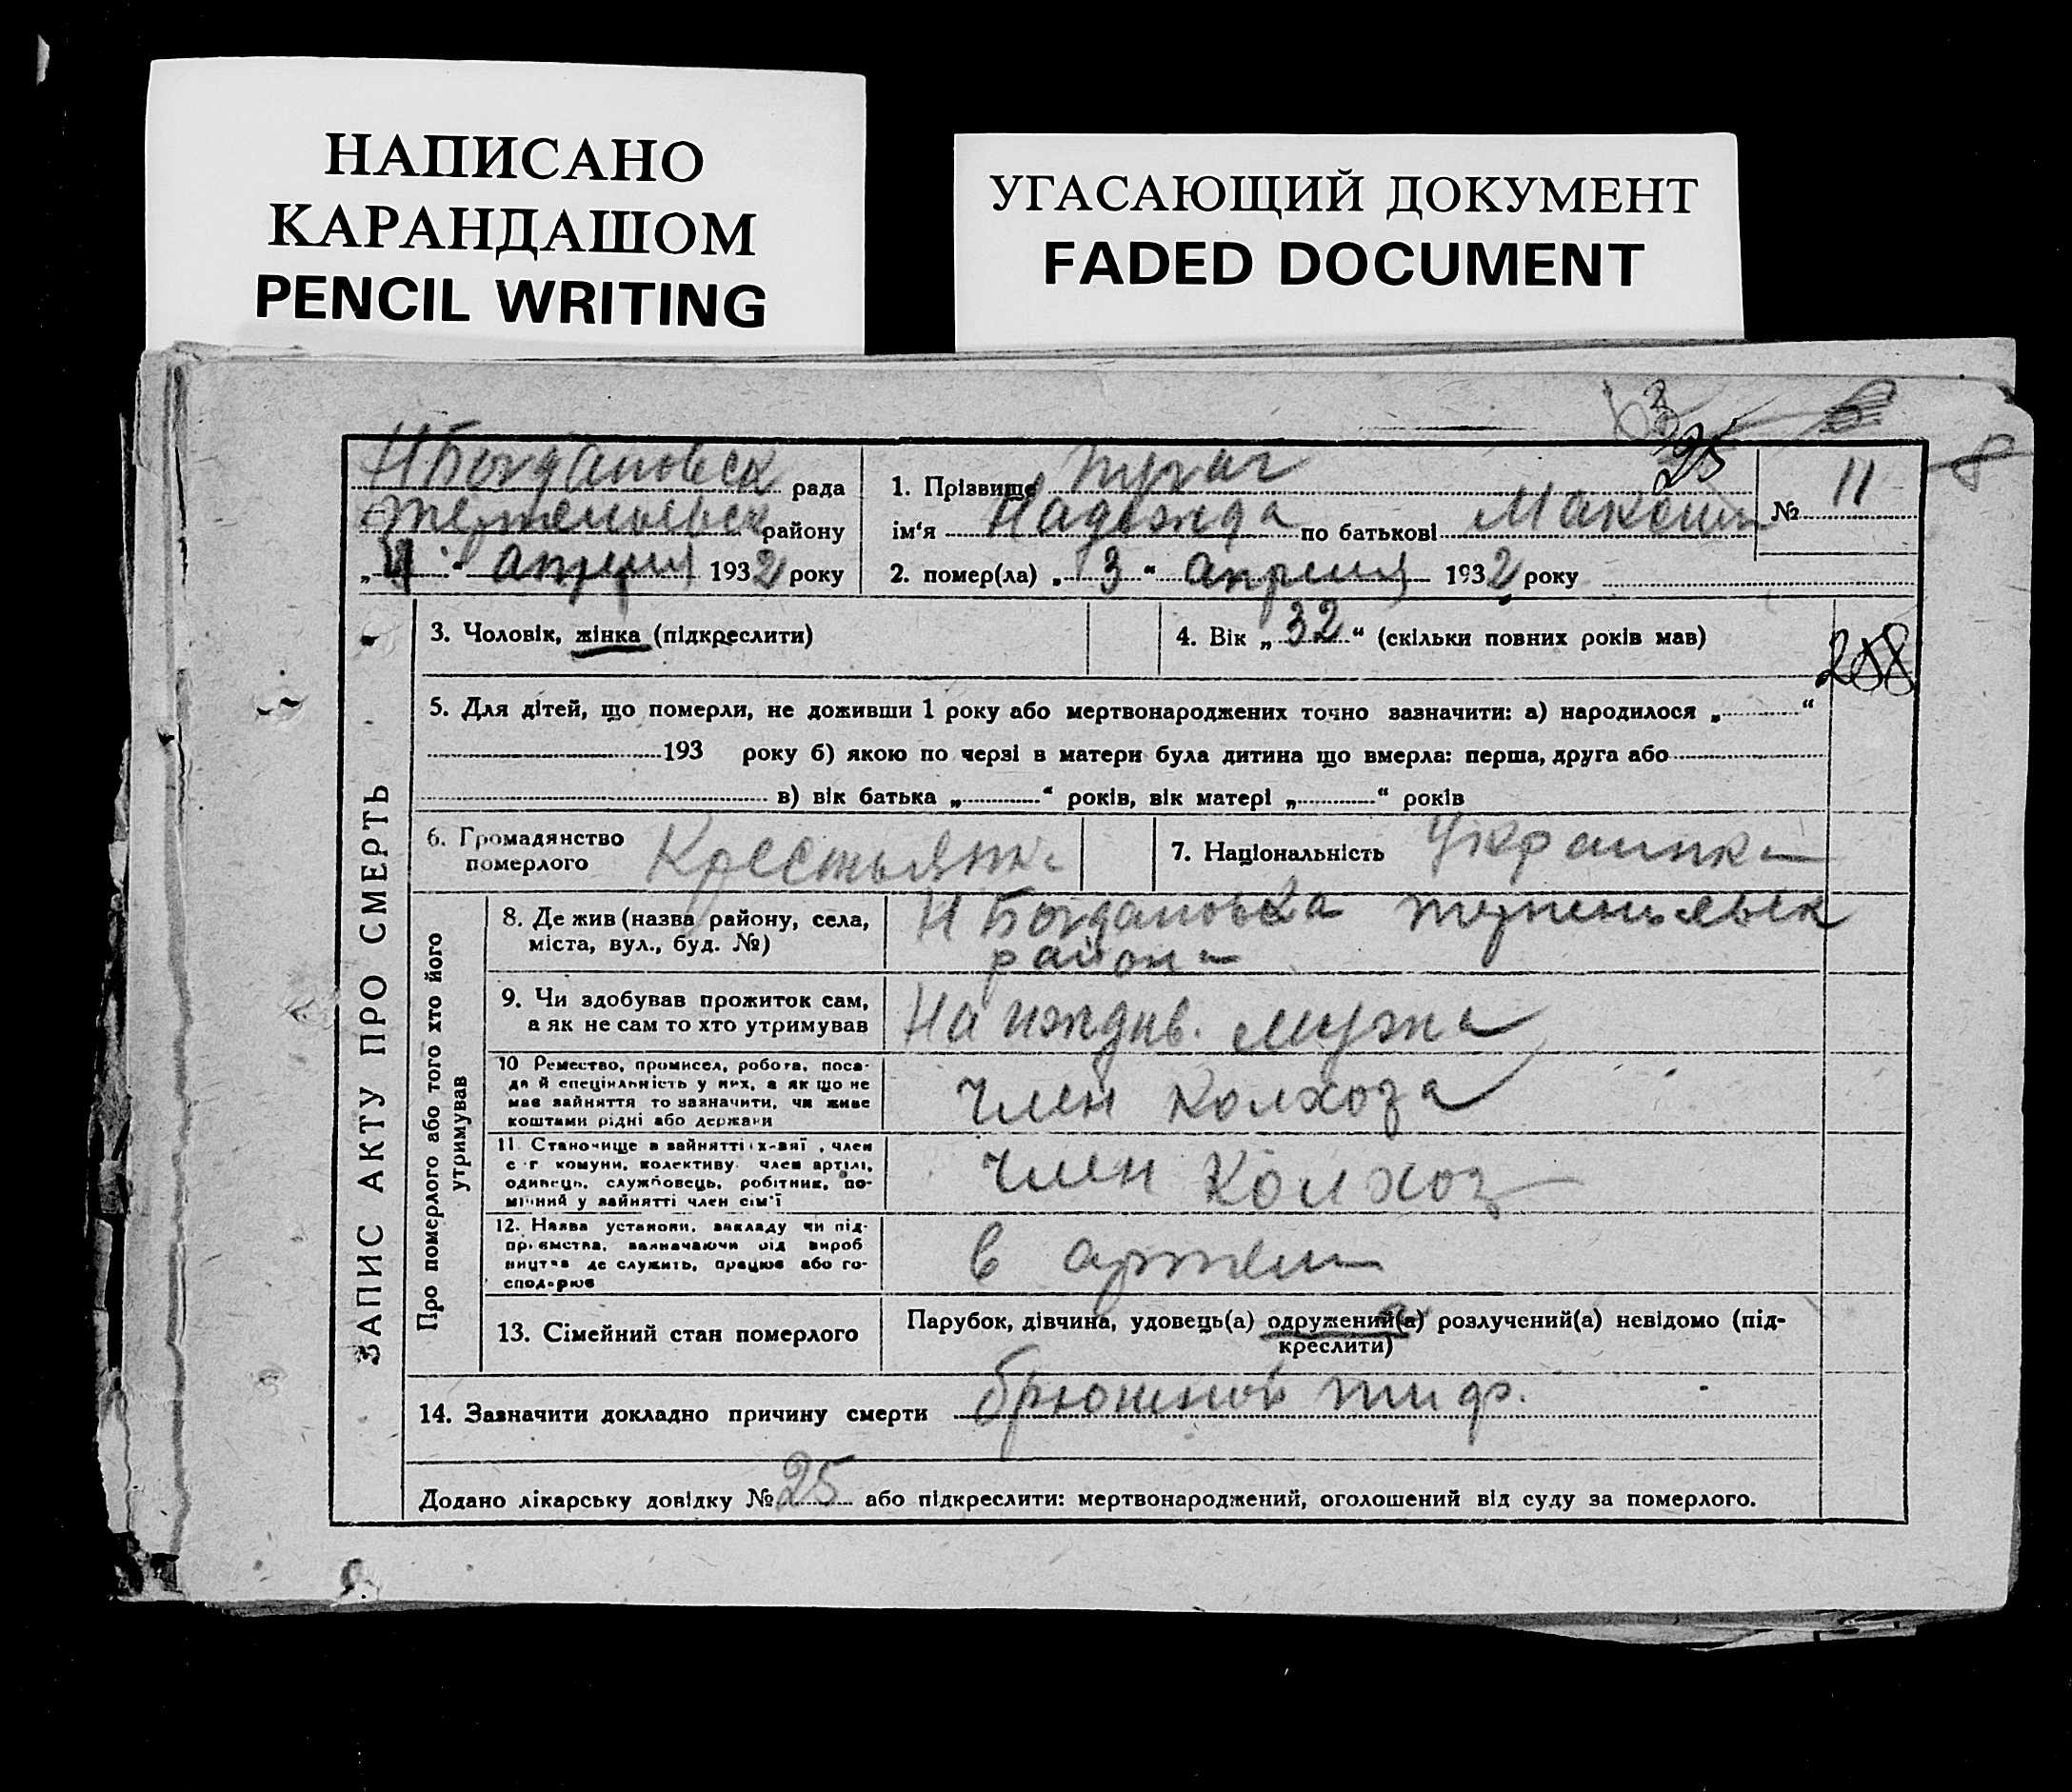 НАПИСАНО
КАРАНДАШОМ
PENCIL WRITING
УГАСАЮЩИЙ ДОКУМЕНТ
FADED DOCUMENT
25
8
Н Богдановск рада
району
„4" апреля 1932 року
1. Прізвище Пугач
ім'я Надежда по батькові Максим
№ 11
2. помер(ла) „3" апреля 1932 року
ЗАПИС АКТУ ПРО СМЕРТЬ
3. Чоловік, жінка (підкреслити)
4. Вік „32" (скільки повних років мав)
288
5. Для дітей, що померли, не доживши 1 року або мертвонароджених точно зазначити: а) народилося „ "
193 року б) якою по черзі в матери була дитина що вмерла: перша, друга або
в) вік батька „ " років, вік матері „ " років
6. Громадянство
померлого Крестьянка
7. Національність Украинка
Про померлого або того хто його
утримував
8. Де жив (назва району, села,
міста, вул., буд. №)
Н Богдановка
района
9. Чи здобував прожиток сам,
а як не сам то хто утримував
На иждив. мужа
10 Ремество, промисел, робота, поса-
да й спеціяльність у них, а як що не
має зайняття то зазначити, чи живе
коштами рідні або держави
Член колхоза
11. Становище в зайнятті х-вяї, член
с г комуни, колективу член артілі,
одинець, службовець, робітник, по-
мічний у зайнятті член сім'ї
член Колхоз
12. Назва установи, закладу чи під-
приємства, зазначаючи від вироб
ництва де служить, працює або го-
сподарює
в артели
13. Сімейний стан померлого
Парубок, дівчина, удовець(а) одружений(а) розлучений(а) невідомо (під-
креслити)
14. Зазначити докладно причину смерти брюшной тиф.
Додано лікарську довідку № 25 або підкреслити: мертвонароджений, оголошений від суду за померлого.